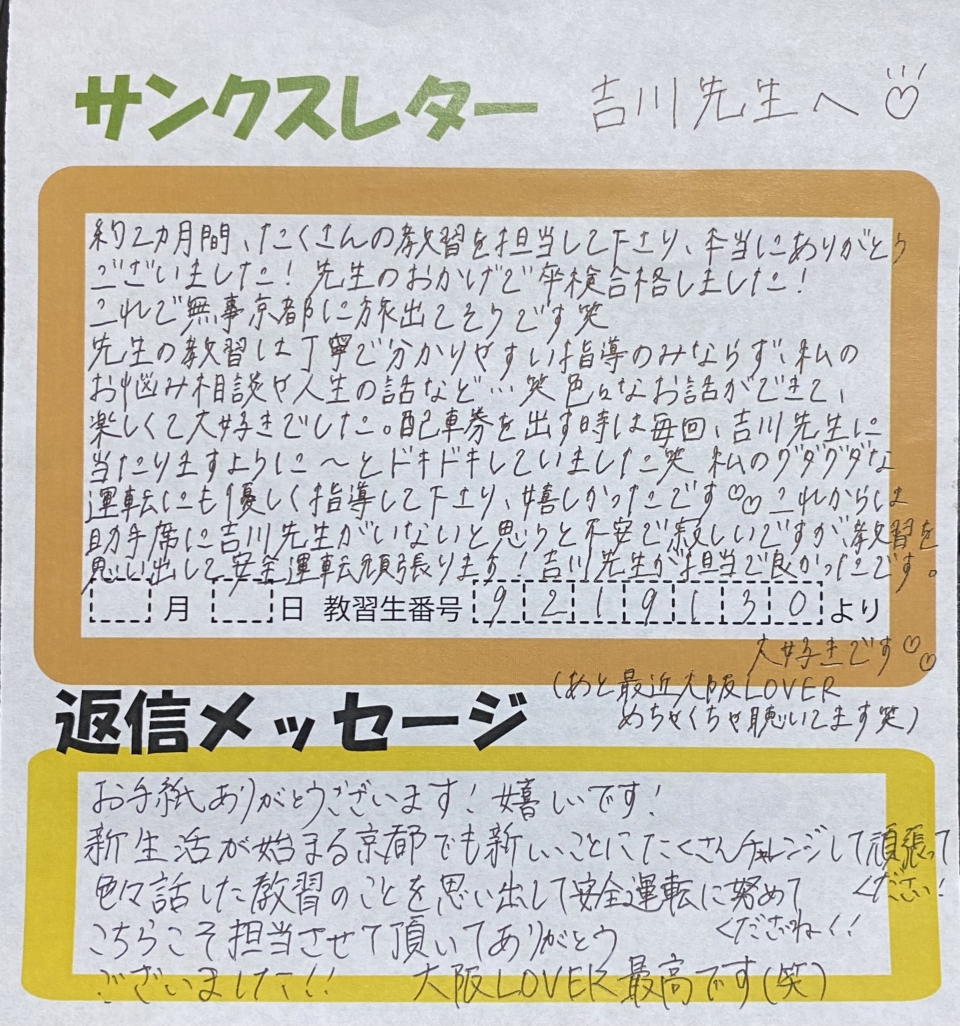 サンクスレター 吉川先生へ♡
約2カ月間、たくさんの教習を担当して下さり、本当にありがとう
ございました！先生のおかげで卒検合格しました！
これで無事京都に旅出てそうです笑
先生の教習は丁寧で分かりやすい指導のみならず、私の
お悩み相談や人生の話など…笑 色々なお話ができて、
楽しくて大好きでした。配車券を出す時は毎回、吉川先生に
当たりますように〜とドキドキしていました笑 私のグダグダな
運転にも優しく指導して下さり、嬉しかったです♡♡これからは
助手席に吉川先生がいないと思うと不安で寂しいですが、教習を
思い出して安全運転頑張ります！吉川先生が担当で良かったです。
月 日 教習生番号 9219130 より
大好きです♡♡
(あと最近大阪LOVER
めちゃくちゃ聴いてます笑)
返信メッセージ
お手紙ありがとうございます！嬉しいです！
新生活が始まる京都でも新しいことにたくさんチャレンジして頑張って
ください！
色々話した教習のことを思い出して安全運転に努めて
くださいね！！
こちらこそ担当させて頂いてありがとう
ございました！！ 大阪LOVER最高です(笑)